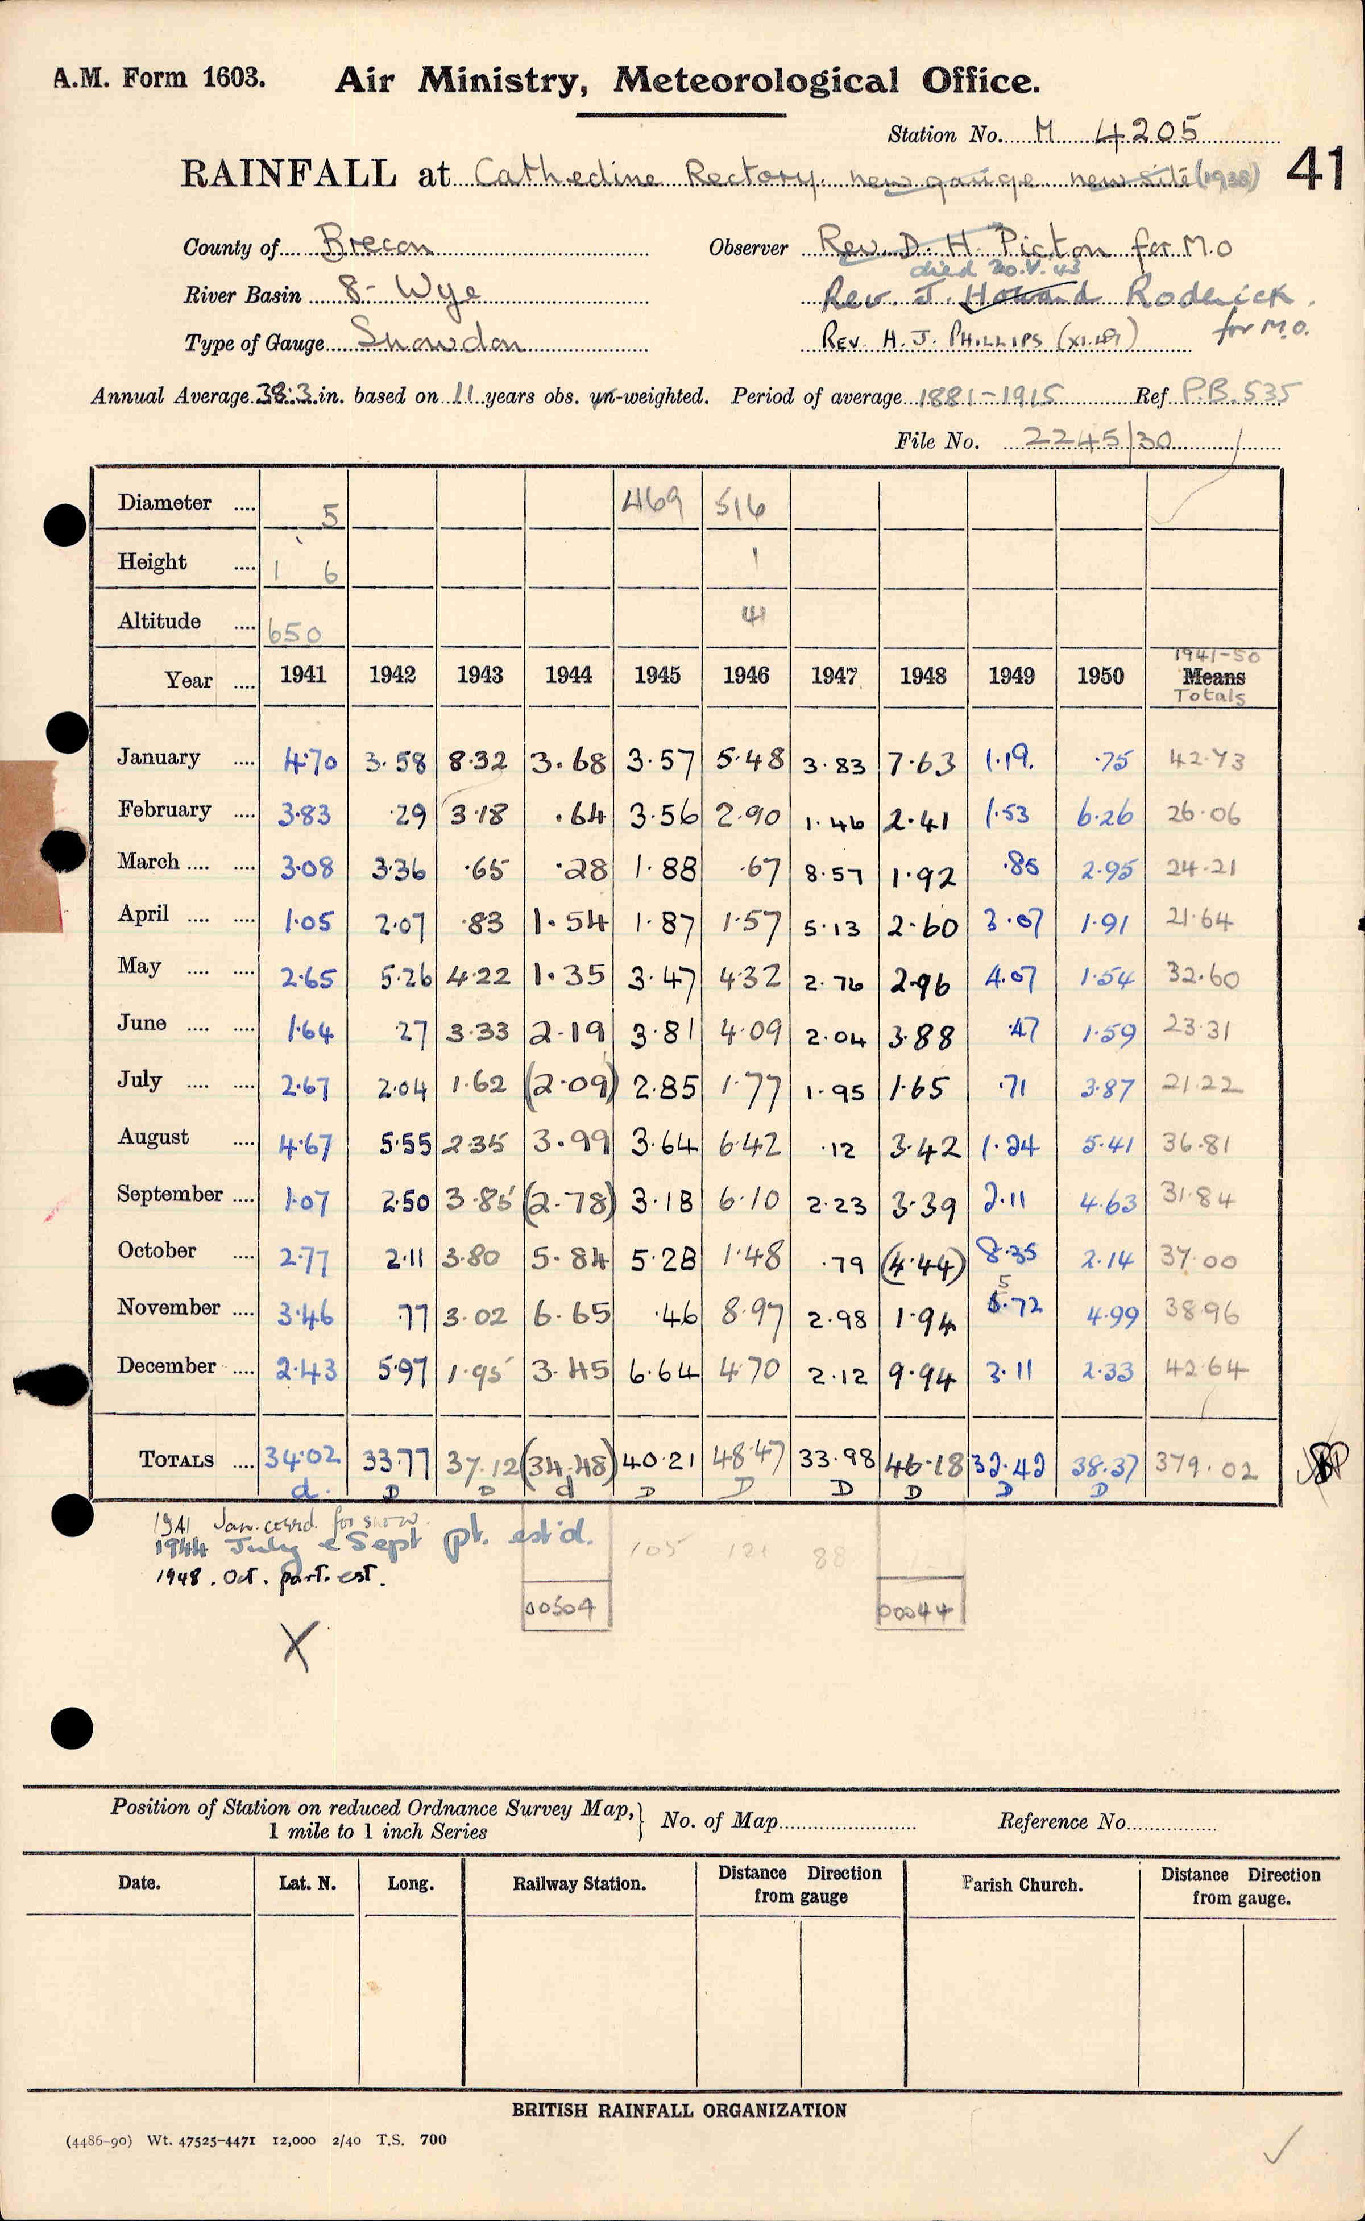 A.M. Form 1603. Air Ministry, Meteorological Office.
Station No. M 4205
RAINFALL at Cathedine Rectory new gauge new site (1938) 41
County of Brecon Observer Rev. D. H. Picton for M.O
died 20.V.43
River Basin 8- Wye Rev. J. Howard Roderick.
for M.O.
Type of Gauge Snowdon REV. H. J. PHILLIPS (XI.49)
Annual Average 38.3 in. based on 11 years obs. un-weighted. Period of average 1881-1915 Ref P.B. 535
File No. 2245/30
Diameter .... 5 469 516
Height .... 1 6 1
Altitude .... 650 41
1941-50
Year .... 1941 1942 1943 1944 1945 1946 1947 1948 1949 1950 Means
Totals
January .... 4.70 3.58 8.32 3.68 3.57 5.48 3.83 7.63 1.19. .75 42.73
February .... 3.83 .29 3.18 .64 3.56 2.90 1.46 2.41 1.53 6.26 26.06
March .... .... 3.08 3.36 .65 .28 1.88 .67 8.57 1.92 .85 2.95 24.21
April .... .... 1.05 2.07 .83 1.54 1.87 1.57 5.13 2.60 3.07 1.91 21.64
May .... .... 2.65 5.26 4.22 1.35 3.47 4.32 2.76 2.96 4.07 1.54 32.60
June .... .... 1.64 .27 3.33 2.19 3.81 4.09 2.04 3.88 .47 1.59 23.31
July .... .... 2.67 2.04 1.62 (2.09) 2.85 1.77 1.95 1.65 .71 3.87 21.22
August .... 4.67 5.55 2.35 3.99 3.64 6.42 .12 3.42 1.24 5.41 36.81
September .... 1.07 2.50 3.85 (2.78) 3.18 6.10 2.23 3.39 2.11 4.63 31.84
October .... 2.77 2.11 3.80 5.84 5.28 1.48 .79 (4.44) 8.35 2.14 37.00
November .... 3.46 .77 3.02 6.65 .46 8.97 2.98 1.94 5.72 4.99 38.96
December .... 2.43 5.97 1.95 3.45 6.64 4.70 2.12 9.94 3.11 2.33 42.64
TOTALS .... 34.02 33.77 37.12 (34.48) 40.21 48.47 33.98 46.18 32.42 38.37 379.02
d. D D d D D D D D D
1941 Jan. corrd. for snow.
1944 July & Sept pt. est'd. 105 121 88
1948. Oct. part. est.
00504 00044
X
Position of Station on reduced Ordnance Survey Map, } No. of Map Reference No.
1 mile to 1 inch Series
Date. Lat. N. Long. Railway Station. Distance Direction from gauge Parish Church. Distance Direction from gauge.
BRITISH RAINFALL ORGANIZATION
(4486-90) Wt. 47525-4471 12,000 2/40 T.S. 700